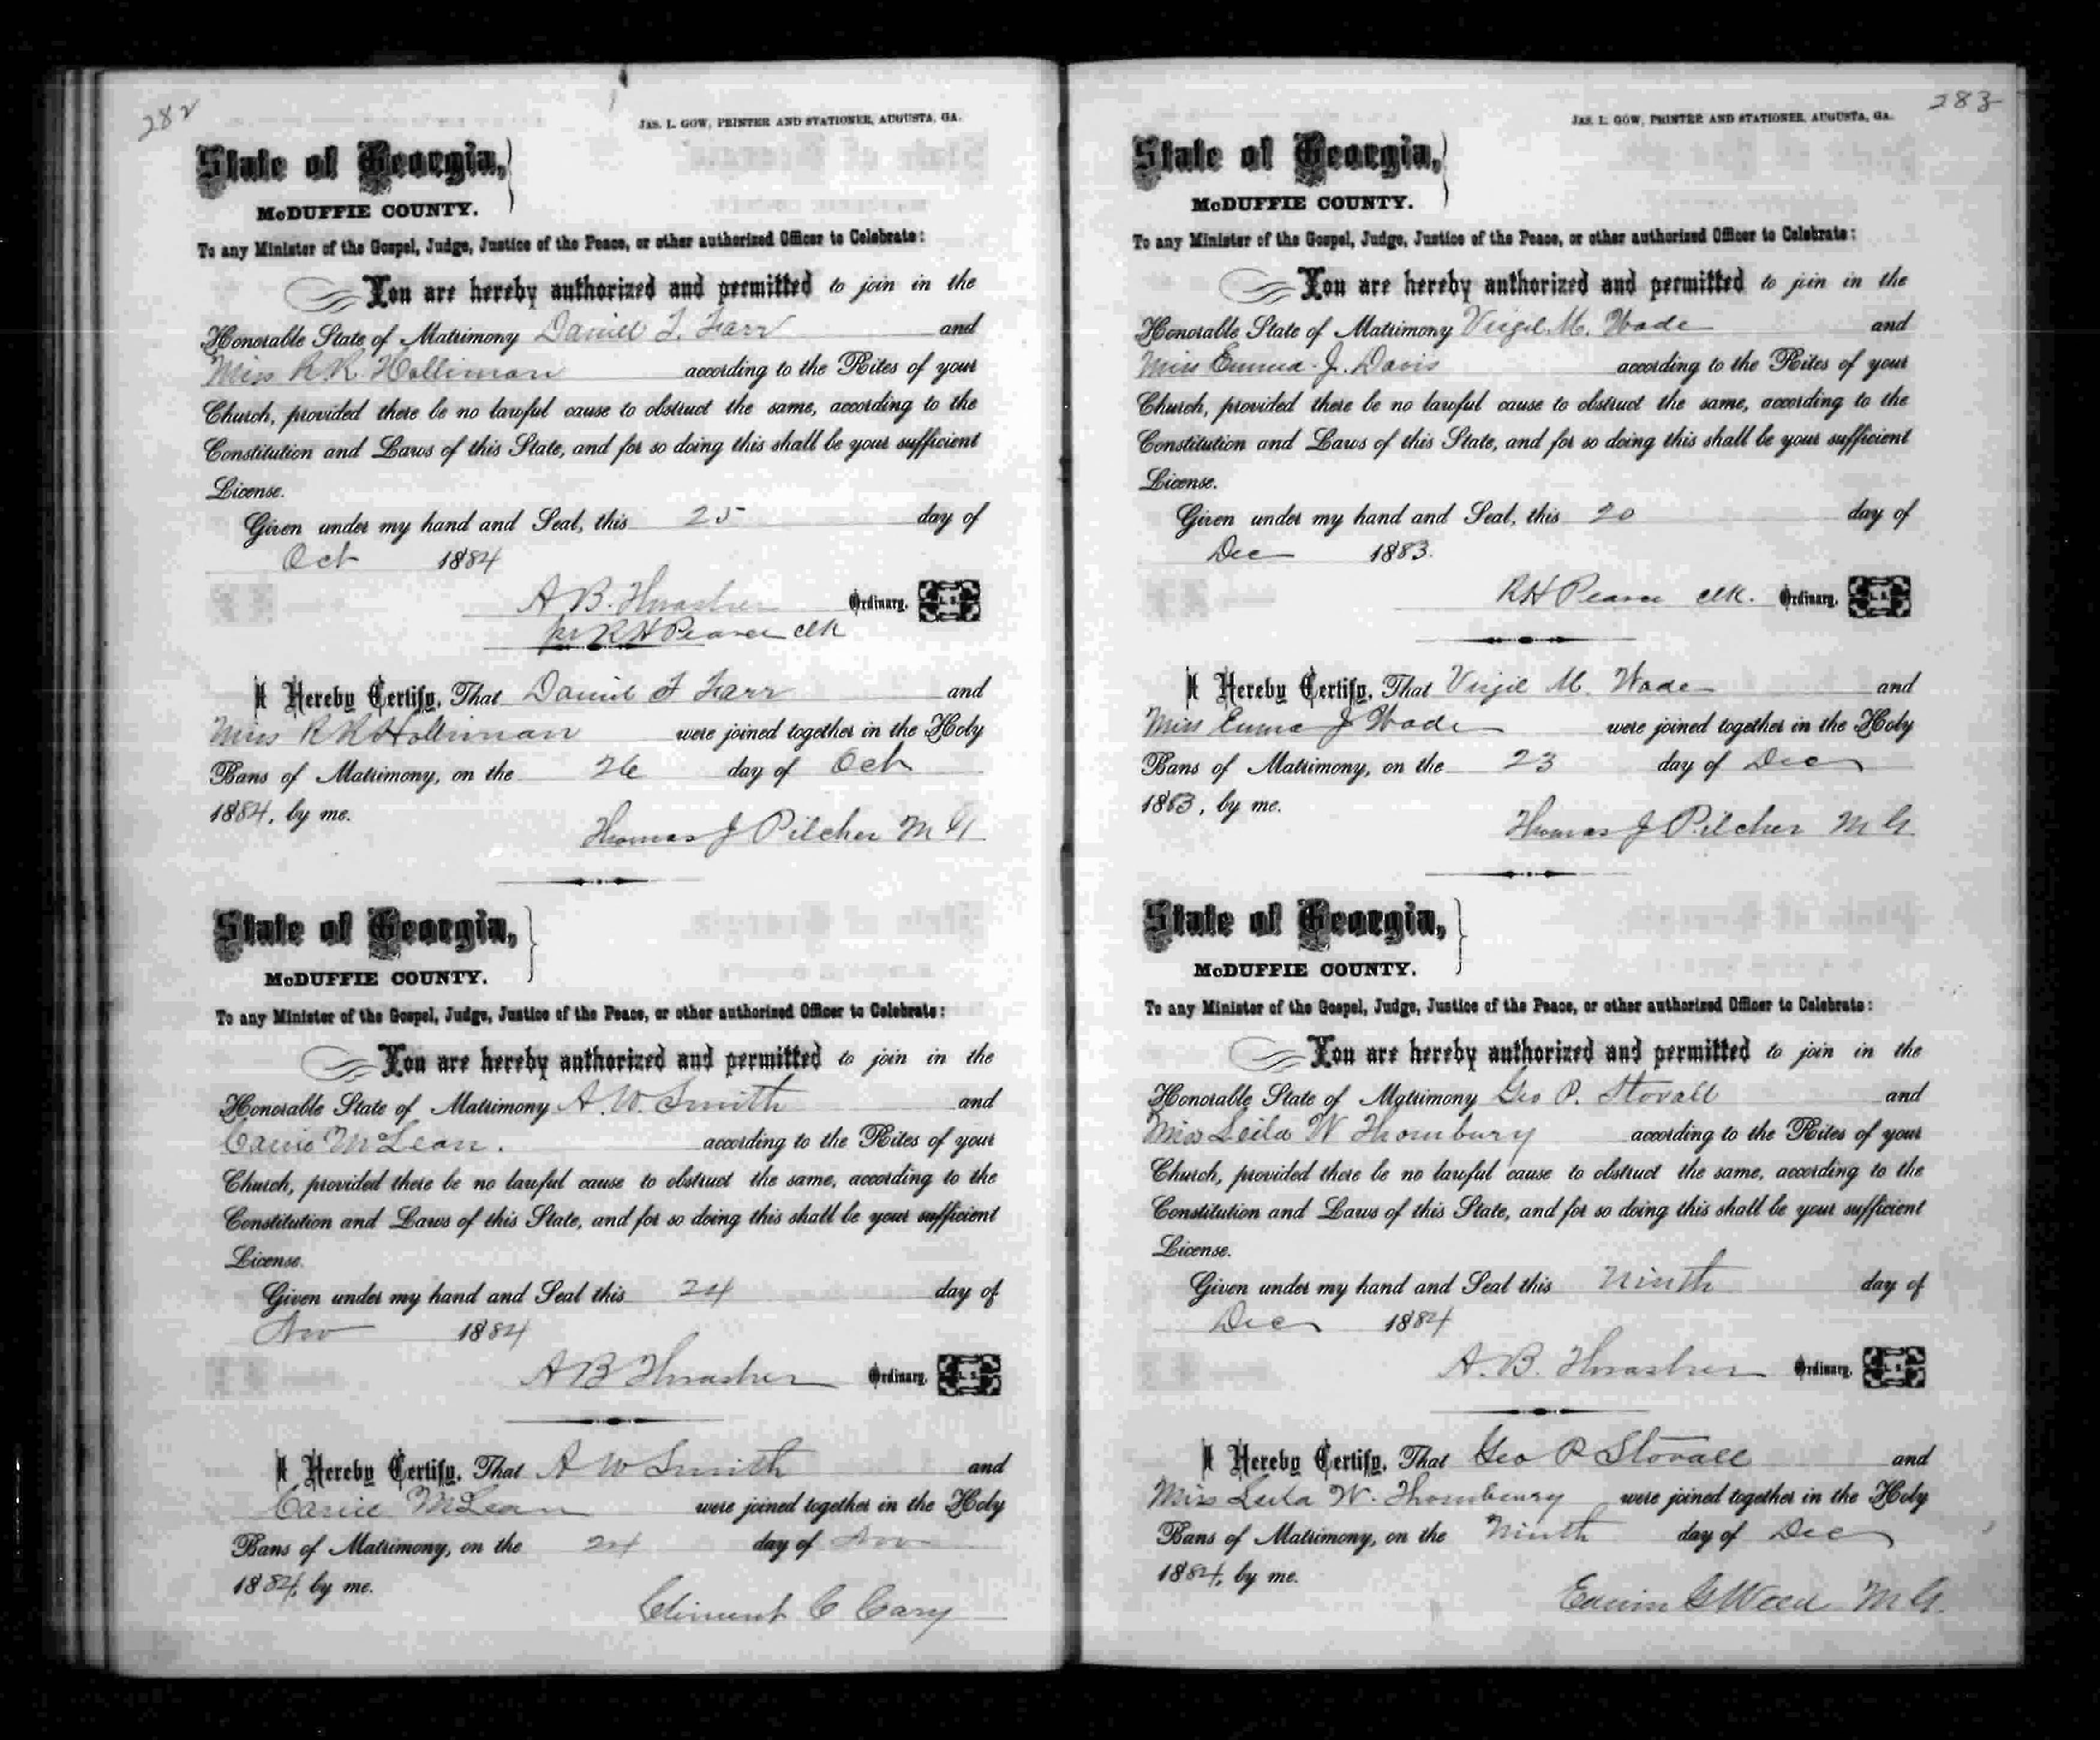 282
JAS. L. GOW, PRINTER AND STATIONER, AUGUSTA, GA.
State of Georgia,
McDUFFIE COUNTY.
To any Minister of the Gospel, Judge, Justice of the Peace, or other authorized Officer to Celebrate:
You are hereby authorized and permitted to join in the
Honorable State of Matrimony Daniel F. Farr and
Miss R R Holliman according to the Rites of your
Church, provided there be no lawful cause to obstruct the same, according to the
Constitution and Laws of this State, and for so doing this shall be your sufficient
License.
Given under my hand and Seal, this 25 day of
Oct 1884
A B. Thrasher Ordinary. L. S.
pr R H Pearce clk
I Hereby Certify, That Daniel F Farr and
Miss R R Holliman were joined together in the Holy
Bans of Matrimony, on the 26 day of Oct
1884, by me.
Thomas J Pilcher M G
State of Georgia,
McDUFFIE COUNTY.
To any Minister of the Gospel, Judge, Justice of the Peace, or other authorized Officer to Celebrate:
You are hereby authorized and permitted to join in the
Honorable State of Matrimony A. W. Smith and
Carrie McLean. according to the Rites of your
Church, provided there be no lawful cause to obstruct the same, according to the
Constitution and Laws of this State, and for so doing this shall be your sufficient
License.
Given under my hand and Seal this 24 day of
Nov 1884
A B Thrasher Ordinary. L. S.
I Hereby Certify, That A W Smith and
Carrie McLean were joined together in the Holy
Bans of Matrimony, on the 24 day of Nov
1884, by me.
Clement C Cary
283
JAS. L. GOW, PRINTER AND STATIONER, AUGUSTA, GA.
State of Georgia,
McDUFFIE COUNTY.
To any Minister of the Gospel, Judge, Justice of the Peace, or other authorized Officer to Celebrate:
You are hereby authorized and permitted to join in the
Honorable State of Matrimony Virgil M. Wade and
Miss Emma J. Davis according to the Rites of your
Church, provided there be no lawful cause to obstruct the same, according to the
Constitution and Laws of this State, and for so doing this shall be your sufficient
License.
Given under my hand and Seal, this 20 day of
Dec 1883.
R H Pearce clk. Ordinary. L. S.
I Hereby Certify, That Virgil M. Wade and
Miss Emma J Wade were joined together in the Holy
Bans of Matrimony, on the 23 day of Dec
1883, by me.
Thomas J Pilcher M G
State of Georgia,
McDUFFIE COUNTY.
To any Minister of the Gospel, Judge, Justice of the Peace, or other authorized Officer to Celebrate:
You are hereby authorized and permitted to join in the
Honorable State of Matrimony Geo P. Stovall and
Miss Leila W Thornbury according to the Rites of your
Church, provided there be no lawful cause to obstruct the same, according to the
Constitution and Laws of this State, and for so doing this shall be your sufficient
License.
Given under my hand and Seal this Ninth day of
Dec 1884
A. B. Thrasher Ordinary. L. S.
I Hereby Certify, That Geo P Stovall and
Miss Leila W. Thornbury were joined together in the Holy
Bans of Matrimony, on the Ninth day of Dec
1884, by me.
Edwin G Weed M G.